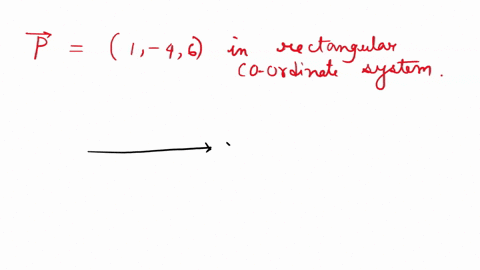 P⃗ = (1, -4, 6) in rectangular
co-ordinate system.